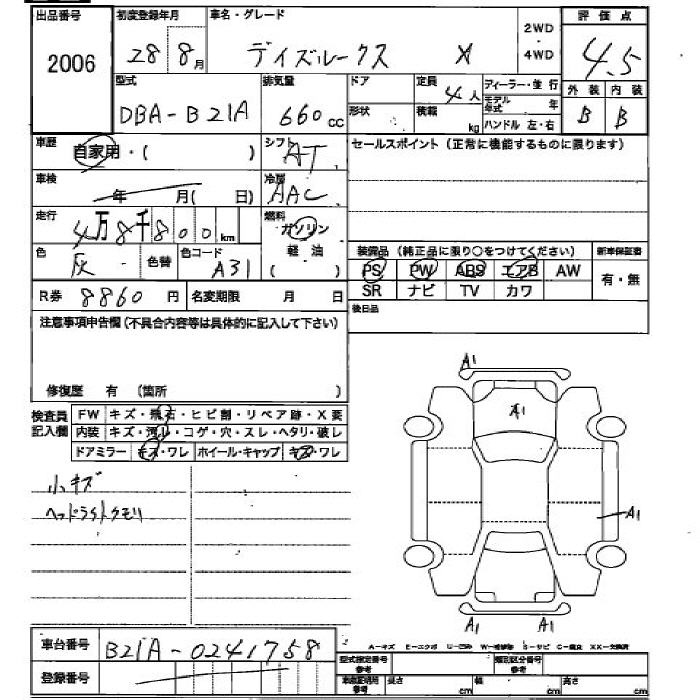 出品番号 初度登録年月 車名・グレード 2WD・4WD 評価点
2006 28 8月 デイズルークス X 4.5
型式 排気量 ドア 定員 ディーラー・並行 外装 内装
DBA-B21A 660cc 形状 4人 積載 kg モデル年式 年 ハンドル 左・右 B B
車歴 自家用・( ) シフト AT セールスポイント (正常に機能するものに限ります)
車検 年 月( 日) 冷房 AAC
走行 4万8千800km 燃料 ガソリン 軽油 ( )
色 灰 色替 色コード A31 装備品 (純正品に限り○をつけてください) 新車保証書
PS PW ABS エアB AW 有・無
R券 8860円 名変期限 月 日 SR ナビ TV カワ
注意事項申告欄(不具合内容等は具体的に記入して下さい) 後日品
修復歴 有 (箇所 )
検査員記入欄 FW キズ・飛石・ヒビ割・リペア跡・X要
内装 キズ・汚レ・コゲ・穴・スレ・ヘタリ・破レ
ドアミラー キズ・ワレ ホイール・キャップ キズ・ワレ
小キズ
ヘッドライトクモリ
A1
A1
A1
A1 A1
車台番号 B21A-0241758
A-キズ E-エクボ U-凹み W-補修跡 S-サビ C-腐食 XX-交換済
登録番号 型式指定番号 参考 類別区分番号 参考
車庫証明用 参考 長さ cm 幅 cm 高さ cm